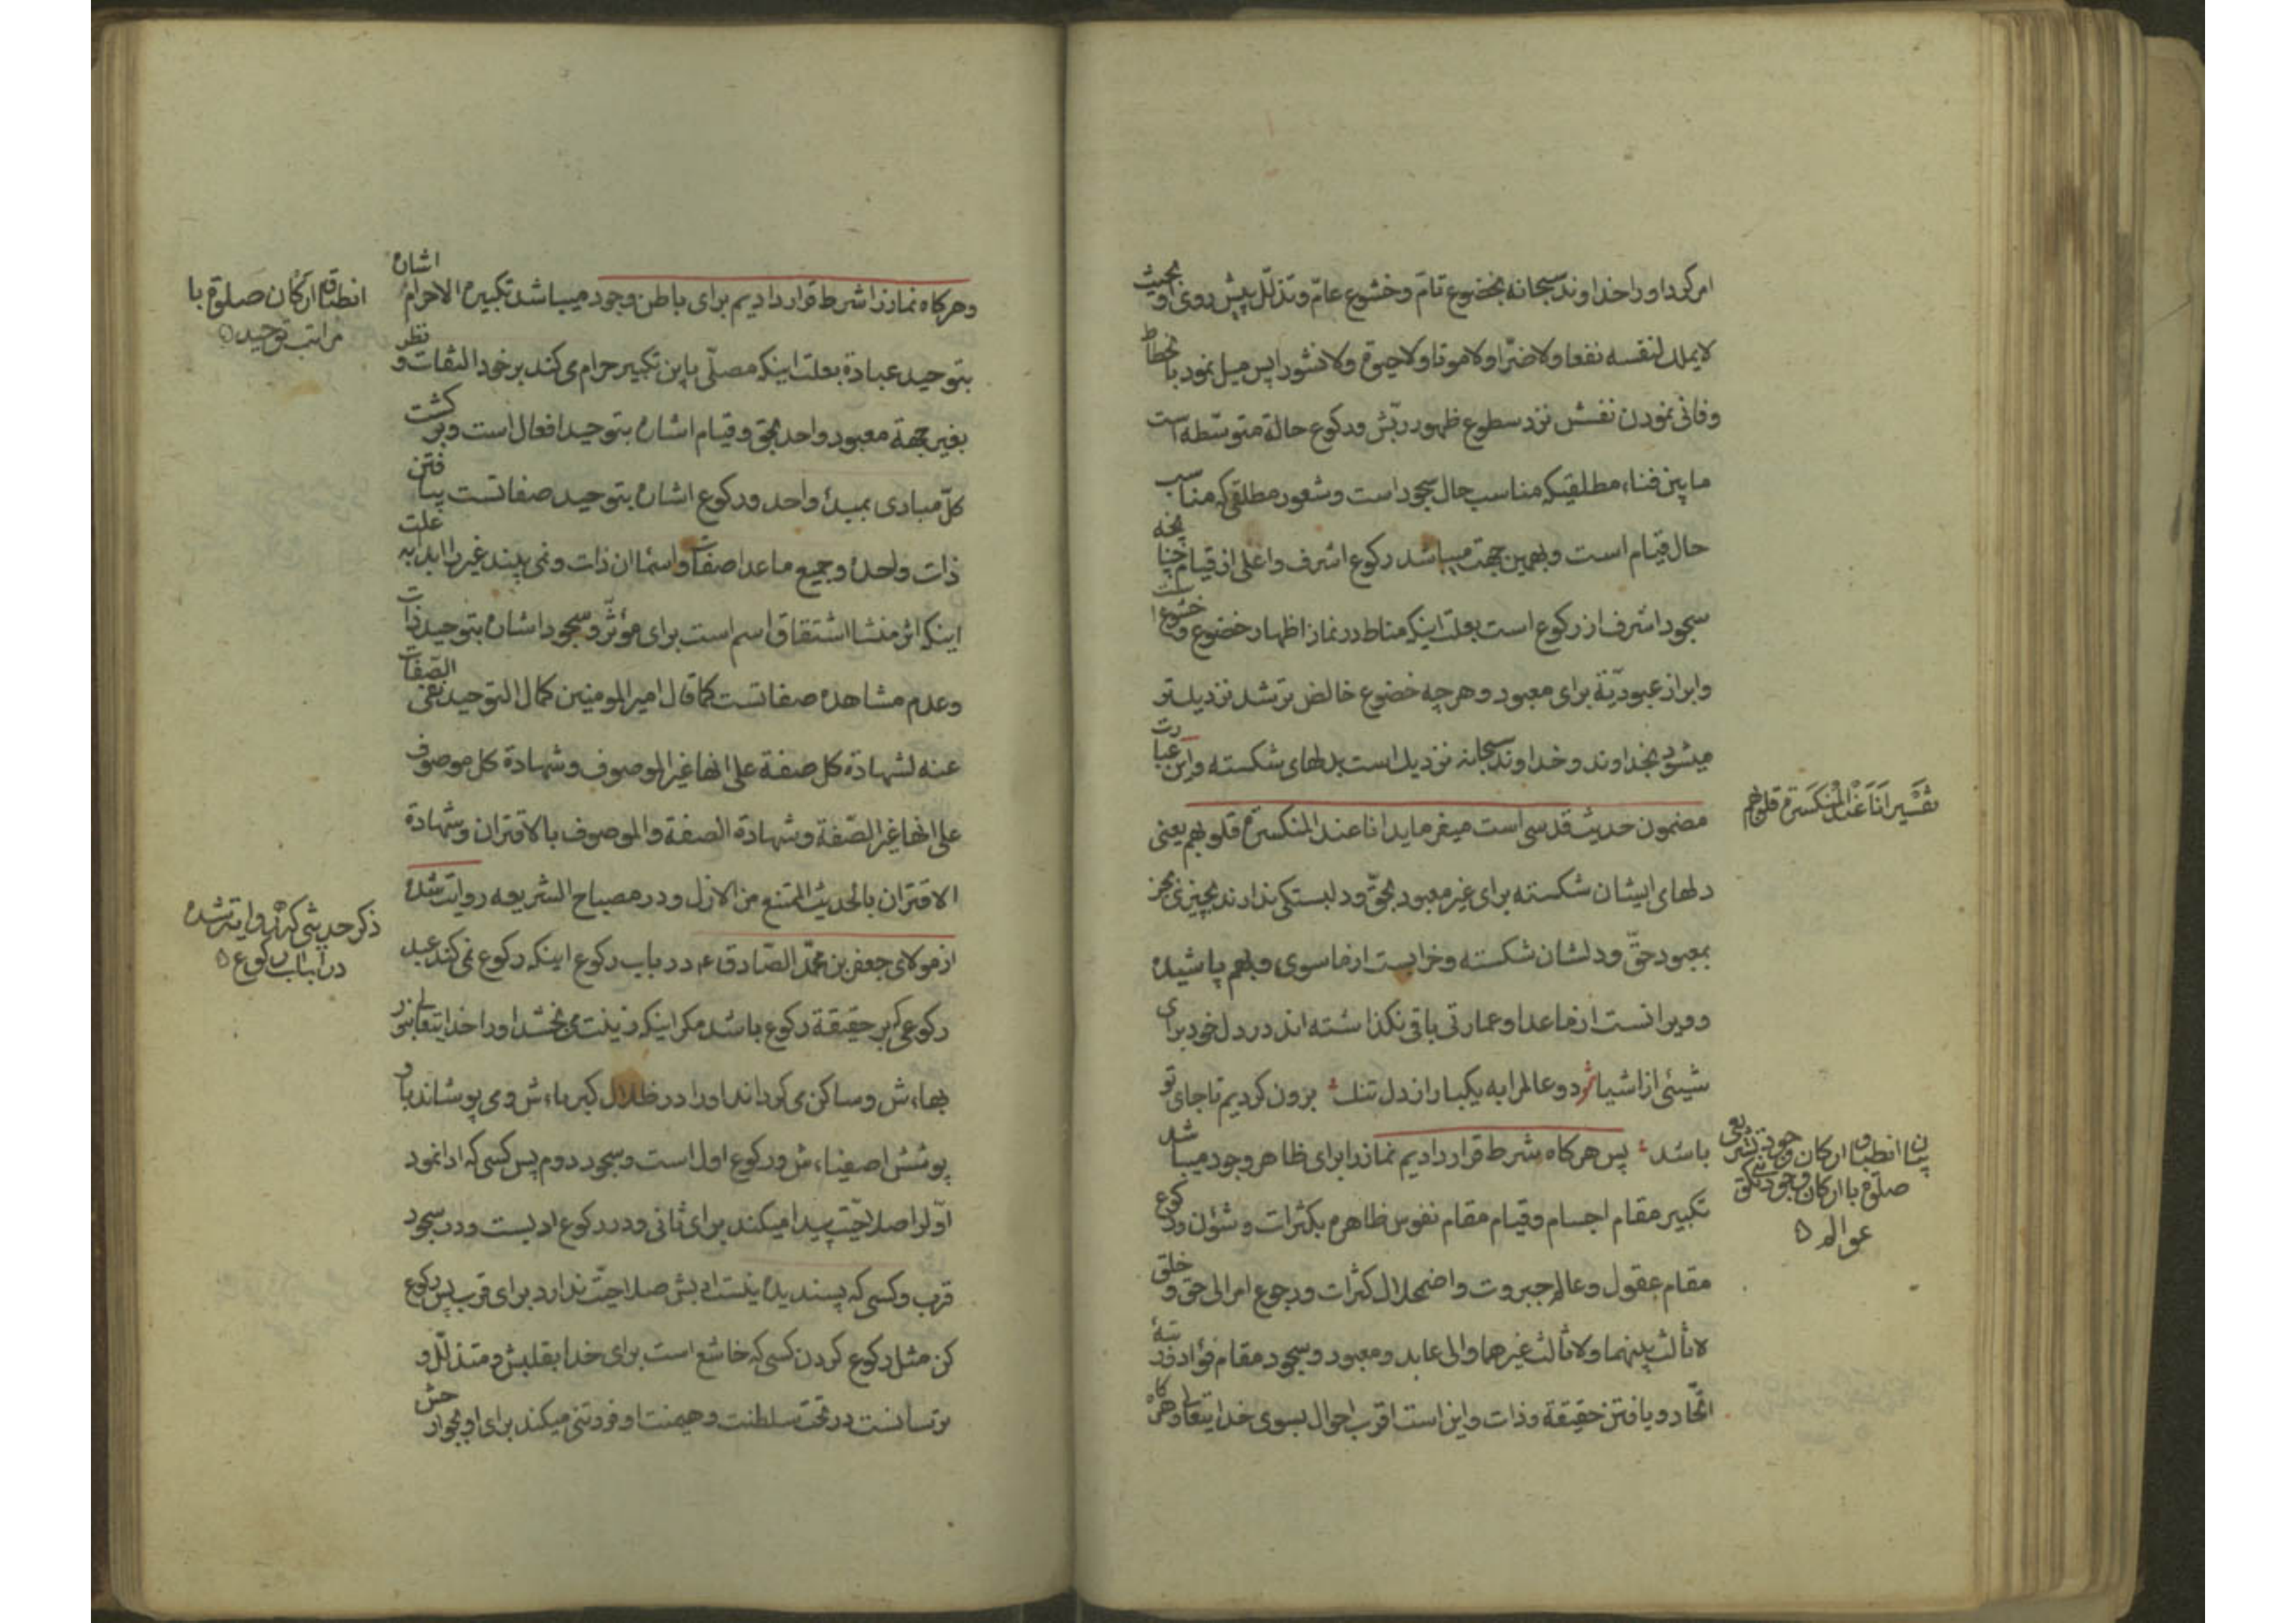 امر کرد او را خداوند سبحانه بخضوع تامّ و خشوع عامّ و تذلّل پیش روی او بحیث
لایملک لنفسه نفعا و لا ضرّا و لا موتا و لا حیوة و لا نشورا پس میل نمود بانحطاط
و فانی نمودن نفسش نزد سطوع ظهور ربّش و رکوع حالة متوسّطه است
ما بین فناء مطلقیکه مناسب حال سجود است و شعور مطلقی که مناسب
حال قیام است و بهمین جهت میباشد رکوع اشرف و اعلی از قیام چنانچه
سجود اشرف از رکوع است بعلت اینکه مناط در نماز اظهار خضوع و خشوع است
و ابراز عبودیّة برای معبود و هر چه خضوع خالص تر شد نزدیکتر
میشود بخداوند و خداوند سبحانه نزدیک است بدلهای شکسته و این عبارت
مضمون حدیث قدسی است میفرماید انا عند المنکسرة قلوبهم یعنی
دلهای ایشان شکسته برای غیر معبود بحقّ و دلبستکی ندارند بچیزی بجز
بمعبود حقّ و دلشان شکسته و خرابست از ما سوی و بهم پاشیده
و ویرانست از ما عدا و عمارتی باقی نکذاشته اند در دل خود برای
شیئی از اشیا دو عالم را به یکبار از دل تنک برون کردیم تا جای تو
باشد پس هرکاه شرط قرار دادیم نماز را برای ظاهر وجود میباشد
تکبیر مقام اجسام و قیام مقام نفوس ظاهره بکثرات و شؤن و رکوع
مقام عقول و عالم جبروت و اضمحلال کثرات و رجوع امر الی حق و خلق
لا ثالث بینهما و لا ثالث غیرهما و الی عابد و معبود و سجود مقام فؤاد و رتبهٔ
اتّحاد و یافتن حقیقة و ذات و این است اقرب احوال بسوی خدایتعالی و هرکاه
تفسیر انا عند المنکسرة قلوبهم
بیان انطباق ارکان وجود تشریعی
صلوة با ارکان وجود تکوینی
عوالم
و هرکاه نماز را شرط قرار دادیم برای باطن وجود میباشد تکبیرة الاحرام اشاره
بتوحید عبادة بعلت اینکه مصلّی باین تکبیر حرام می کند بر خود التفات و نظر
بغیر جهة معبود واحد بحق و قیام اشاره بتوحید افعال است و برکشت
کلّ مبادی بمبدأ واحد و رکوع اشاره بتوحید صفاتست بیافتن
ذات واحده و جمیع ما عدا صفات و اسماء ان ذات و نمی بیند غیر را ابدا بعلت
اینکه اثر منشا اشتقاق اسم است برای مؤثّر و سجود اشاره بتوحید ذات
و عدم مشاهده صفاتست کما قال امیر المومنین کمال التوحید نفی الصّفات
عنه لشهادة کل صفة علی انها غیر الموصوف و شهادة کل موصوف
علی انها غیر الصّفة و شهادة الصفة و الموصوف بالاقتران و شهادة
الاقتران بالحدیث الممتنع من الازل و در مصباح الشریعه روایت شده
از مولای جعفر بن محمّد الصّادق ع در باب رکوع اینکه رکوع نمی کند عبد
رکوعی که بر حقیقة رکوع باشد مکر اینکه زینت می بخشد او را خدایتعالی بنور
بهاءش و ساکن می کرداند او را در ظلال کبریاءش و می پوشاند باو
پوشش اصفیاءش و رکوع اول است و سجود دوم پس کسی که ادا نمود
اوّل را صلاحیّت پیدا میکند برای ثانی و در رکوع ادبست و در سجود
قرب و کسی که پسندیده نیست ادبش صلاحیّت ندارد برای قرب پس رکوع
کن مثل رکوع کردن کسی که خاشع است برای خدا بقلبش و متذلّل و
ترسانست در تحت سلطنت و هیمنت او فروتنی میکند برای او بجوارحش
انطباق ارکان صلوة با
مراتب توحید
ذکر حدیثی که روایت شده
در باب رکوع